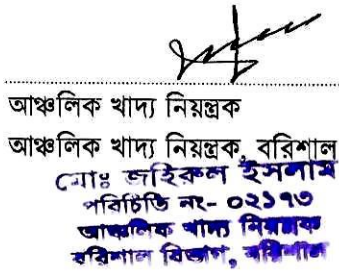 আঞ্চলিক খাদ্য নিয়ন্ত্রক
আঞ্চলিক খাদ্য নিয়ন্ত্রক, বরিশাল
মোঃ জহিরুল ইসলাম
পরিচিতি নং- ০২১৭৩
আঞ্চলিক খাদ্য নিয়ন্ত্রক
বরিশাল বিভাগ, বরিশাল